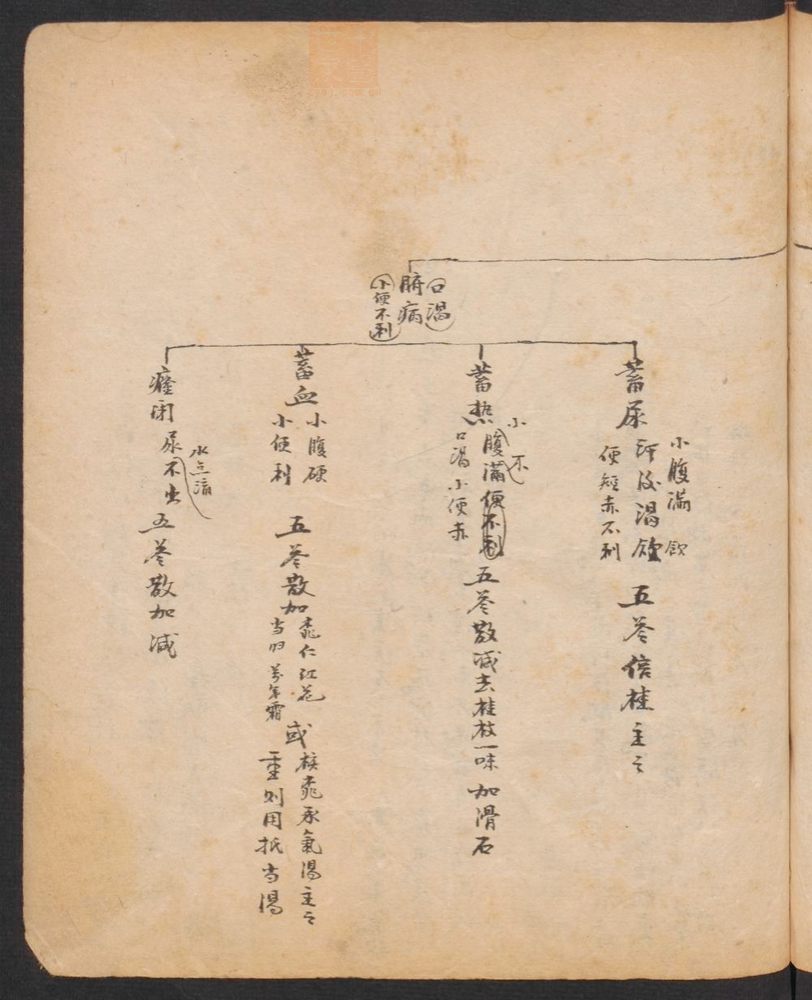 口渴
腑病
小便不利
小腹满 飲
蓄尿 渴
便短赤不利
五苓倍桂主之
小 不
蓄热 腹满便不利
口渴小便赤
五苓散減去桂枝一味 加滑石
蓄血
小腹硬
小便利
五苓散加
桃仁红花
当归 萬年霜
或
核桃承氣湯主之
重则用抵当湯
癃闭 尿不出
水点滴
五苓散加減